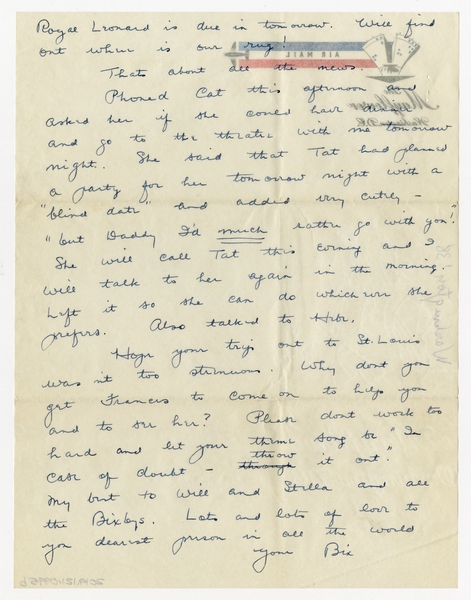 Royal Leonard is due in tomorrow. Will find
out where is our rug!
Thats about all the news.
Phoned Cat this afternoon and
asked her if she could have dinner
and go to the theatre with me tomorrow
night. She said that Tat had planned
a party for her tomorrow night with a
"blind date" and added very cutely –
"but Daddy I'd much rather go with you!"
She will call Tat this evening and I
will talk to her again in the morning.
Left it so she can do whichever she
prefers. Also talked to Hebe.
Hope your trip out to St. Louis
wasn't too strenuous. Why dont you
get Frances to come on to help you
and to see her? Please dont work too
hard and let your theme song be "In
case of doubt – throw it out."
My best to Will and Stella and all
the Bixbys. Lots and lots of love to
you dearest person in all the world
Your Bix
AIR MAIL
The Mayflower
Washington, D.C.